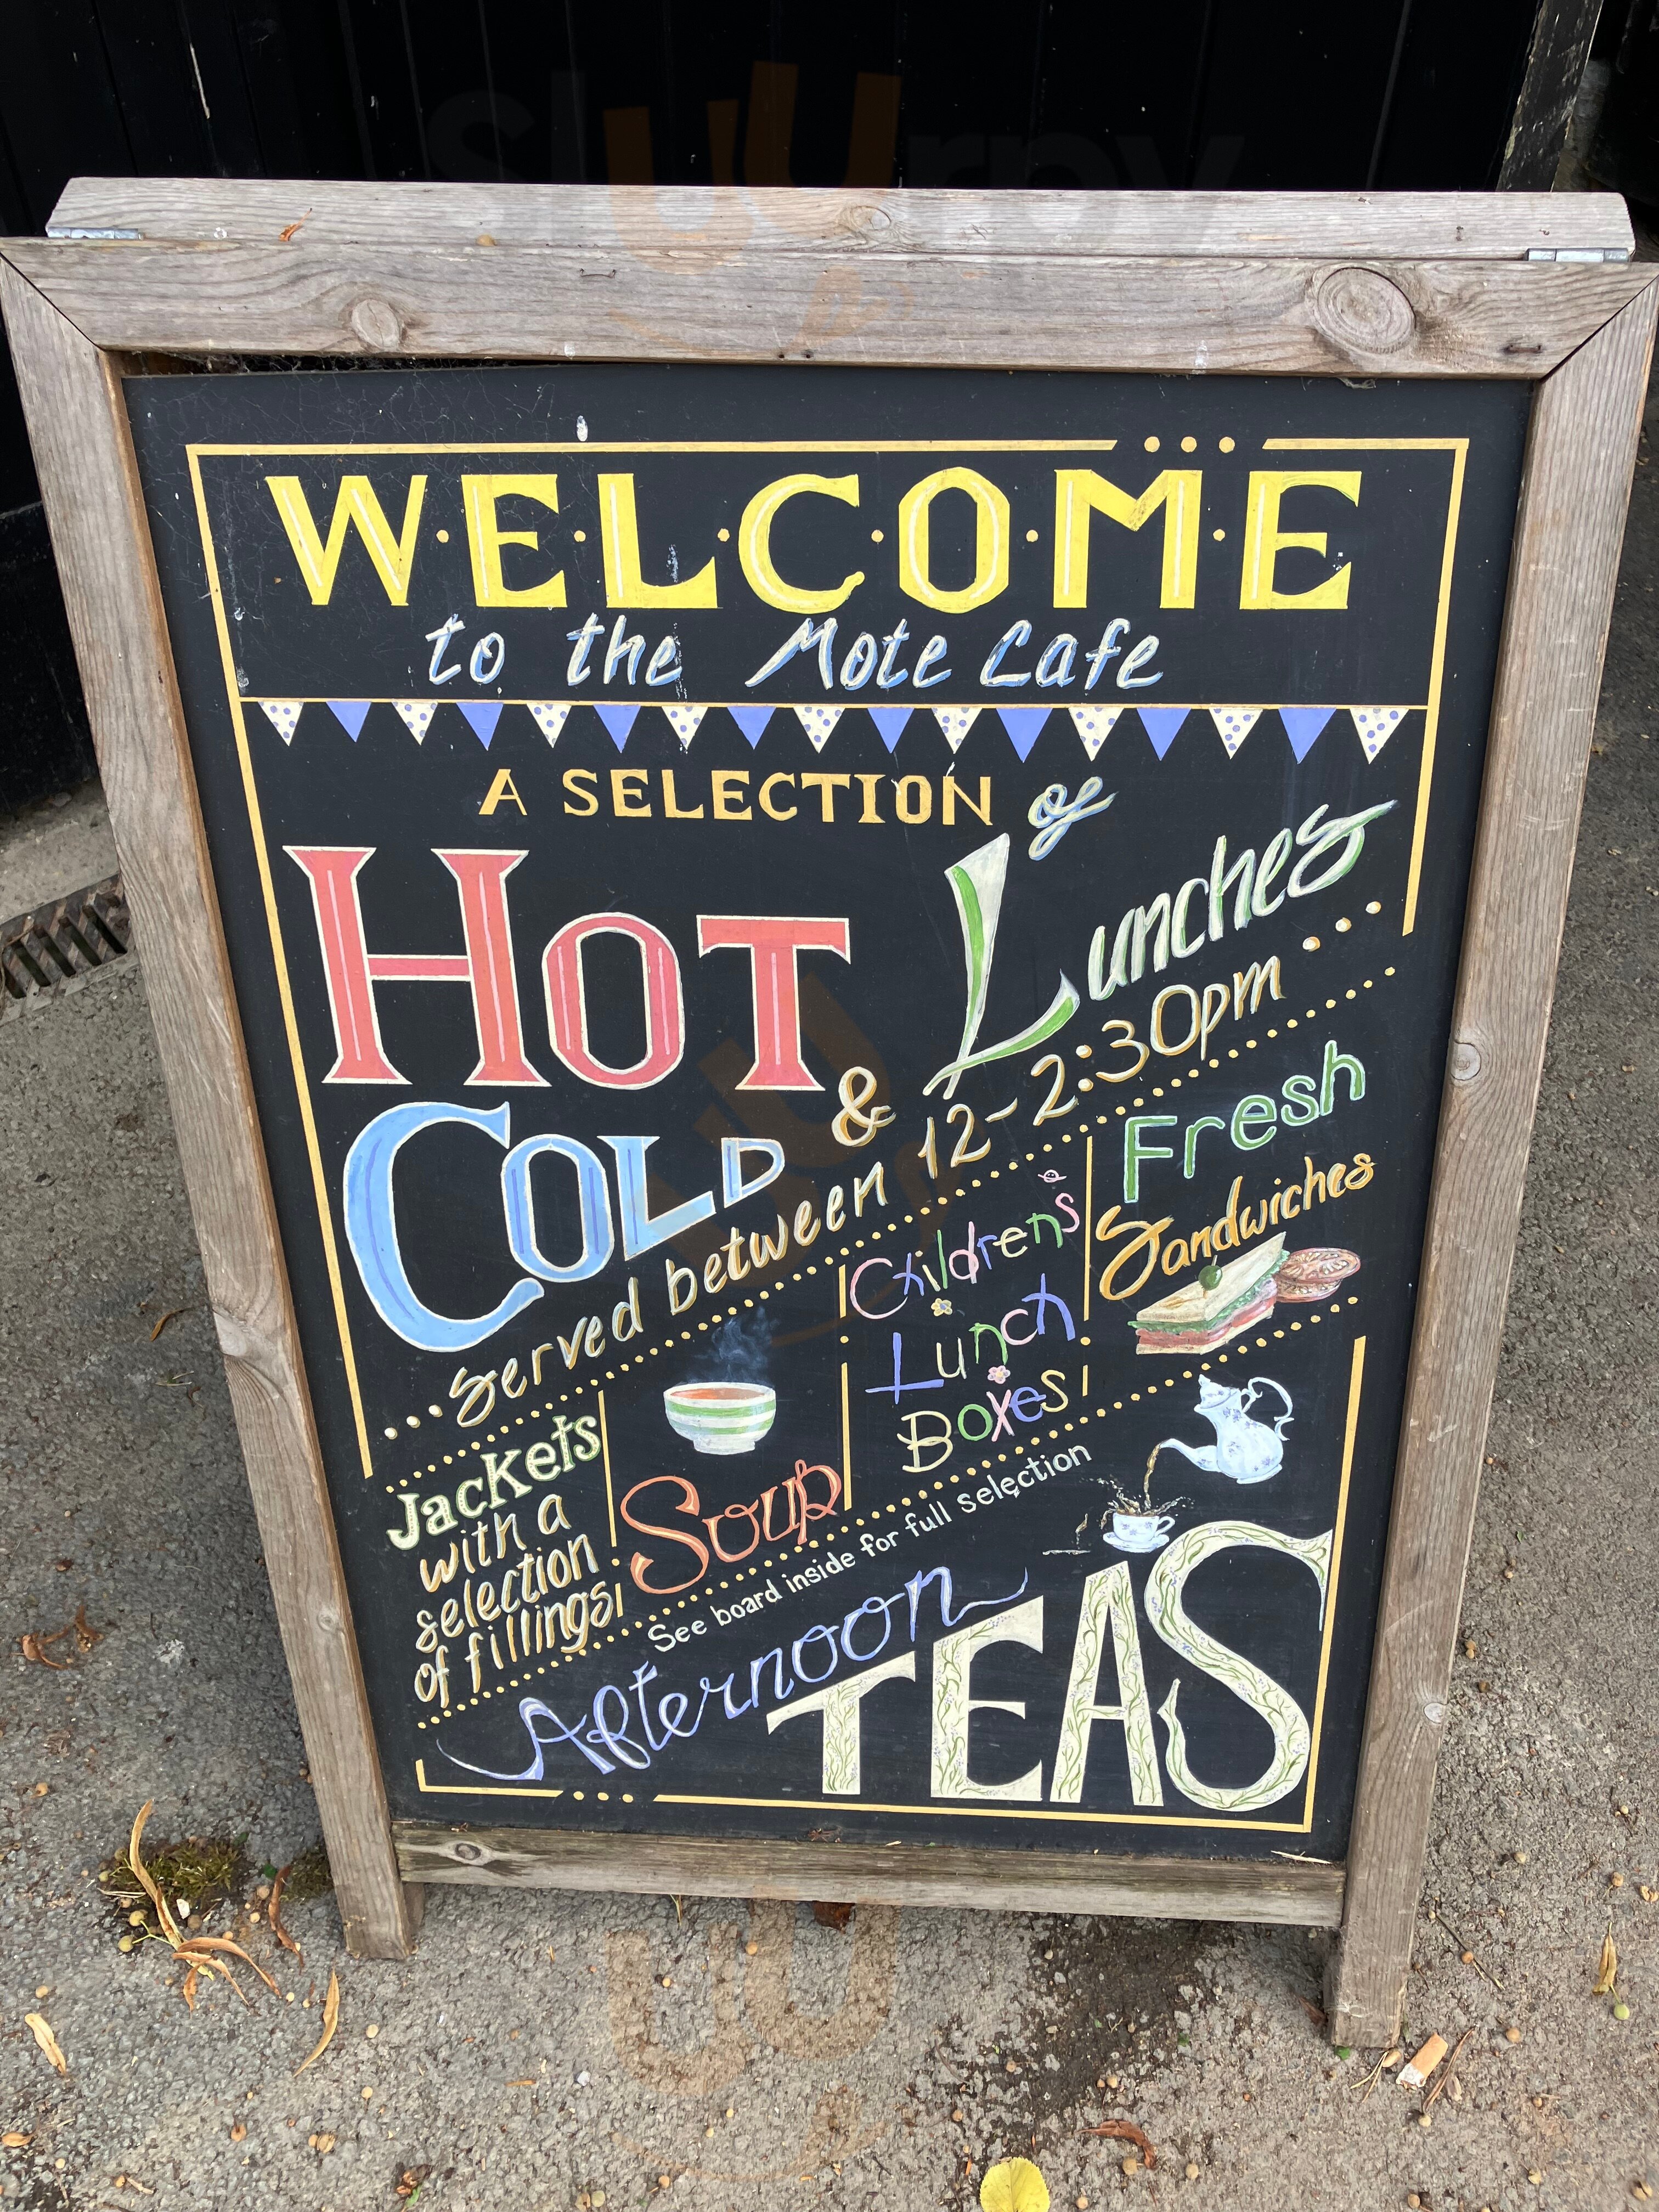 sluurpy
W·E·L·C·O·M·E
to the Mote Cafe
A SELECTION of
HOT & COLD Lunches
...served between 12-2:30pm...
Jackets
with a
selection
of fillings
Soup
Children's
Lunch
Boxes
Fresh
Sandwiches
See board inside for full selection
Afternoon
TEAS